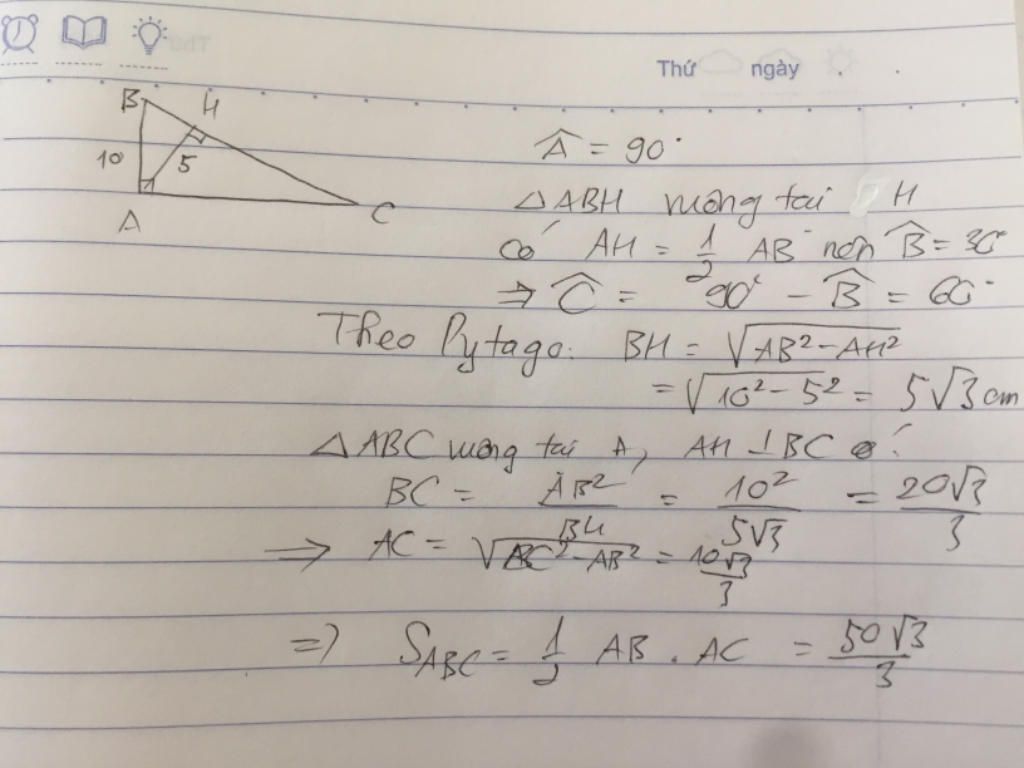 Thứ ngày
B H
10 5
A C
Â = 90°
△ABH vuông tại H
có AH = 1/2 AB nên B̂ = 30°
⇒ Ĉ = 90° − B̂ = 60°
Theo Pytago: BH = √(AB² − AH²)
= √(10² − 5²) = 5√3 cm
△ABC vuông tại A, AH ⊥ BC có:
BC = AB²/BH = 10²/(5√3) = 20√3/3
⇒ AC = √(BC² − AB²) = 10√3/3
⇒ S_ABC = 1/2 AB . AC = 50√3/3